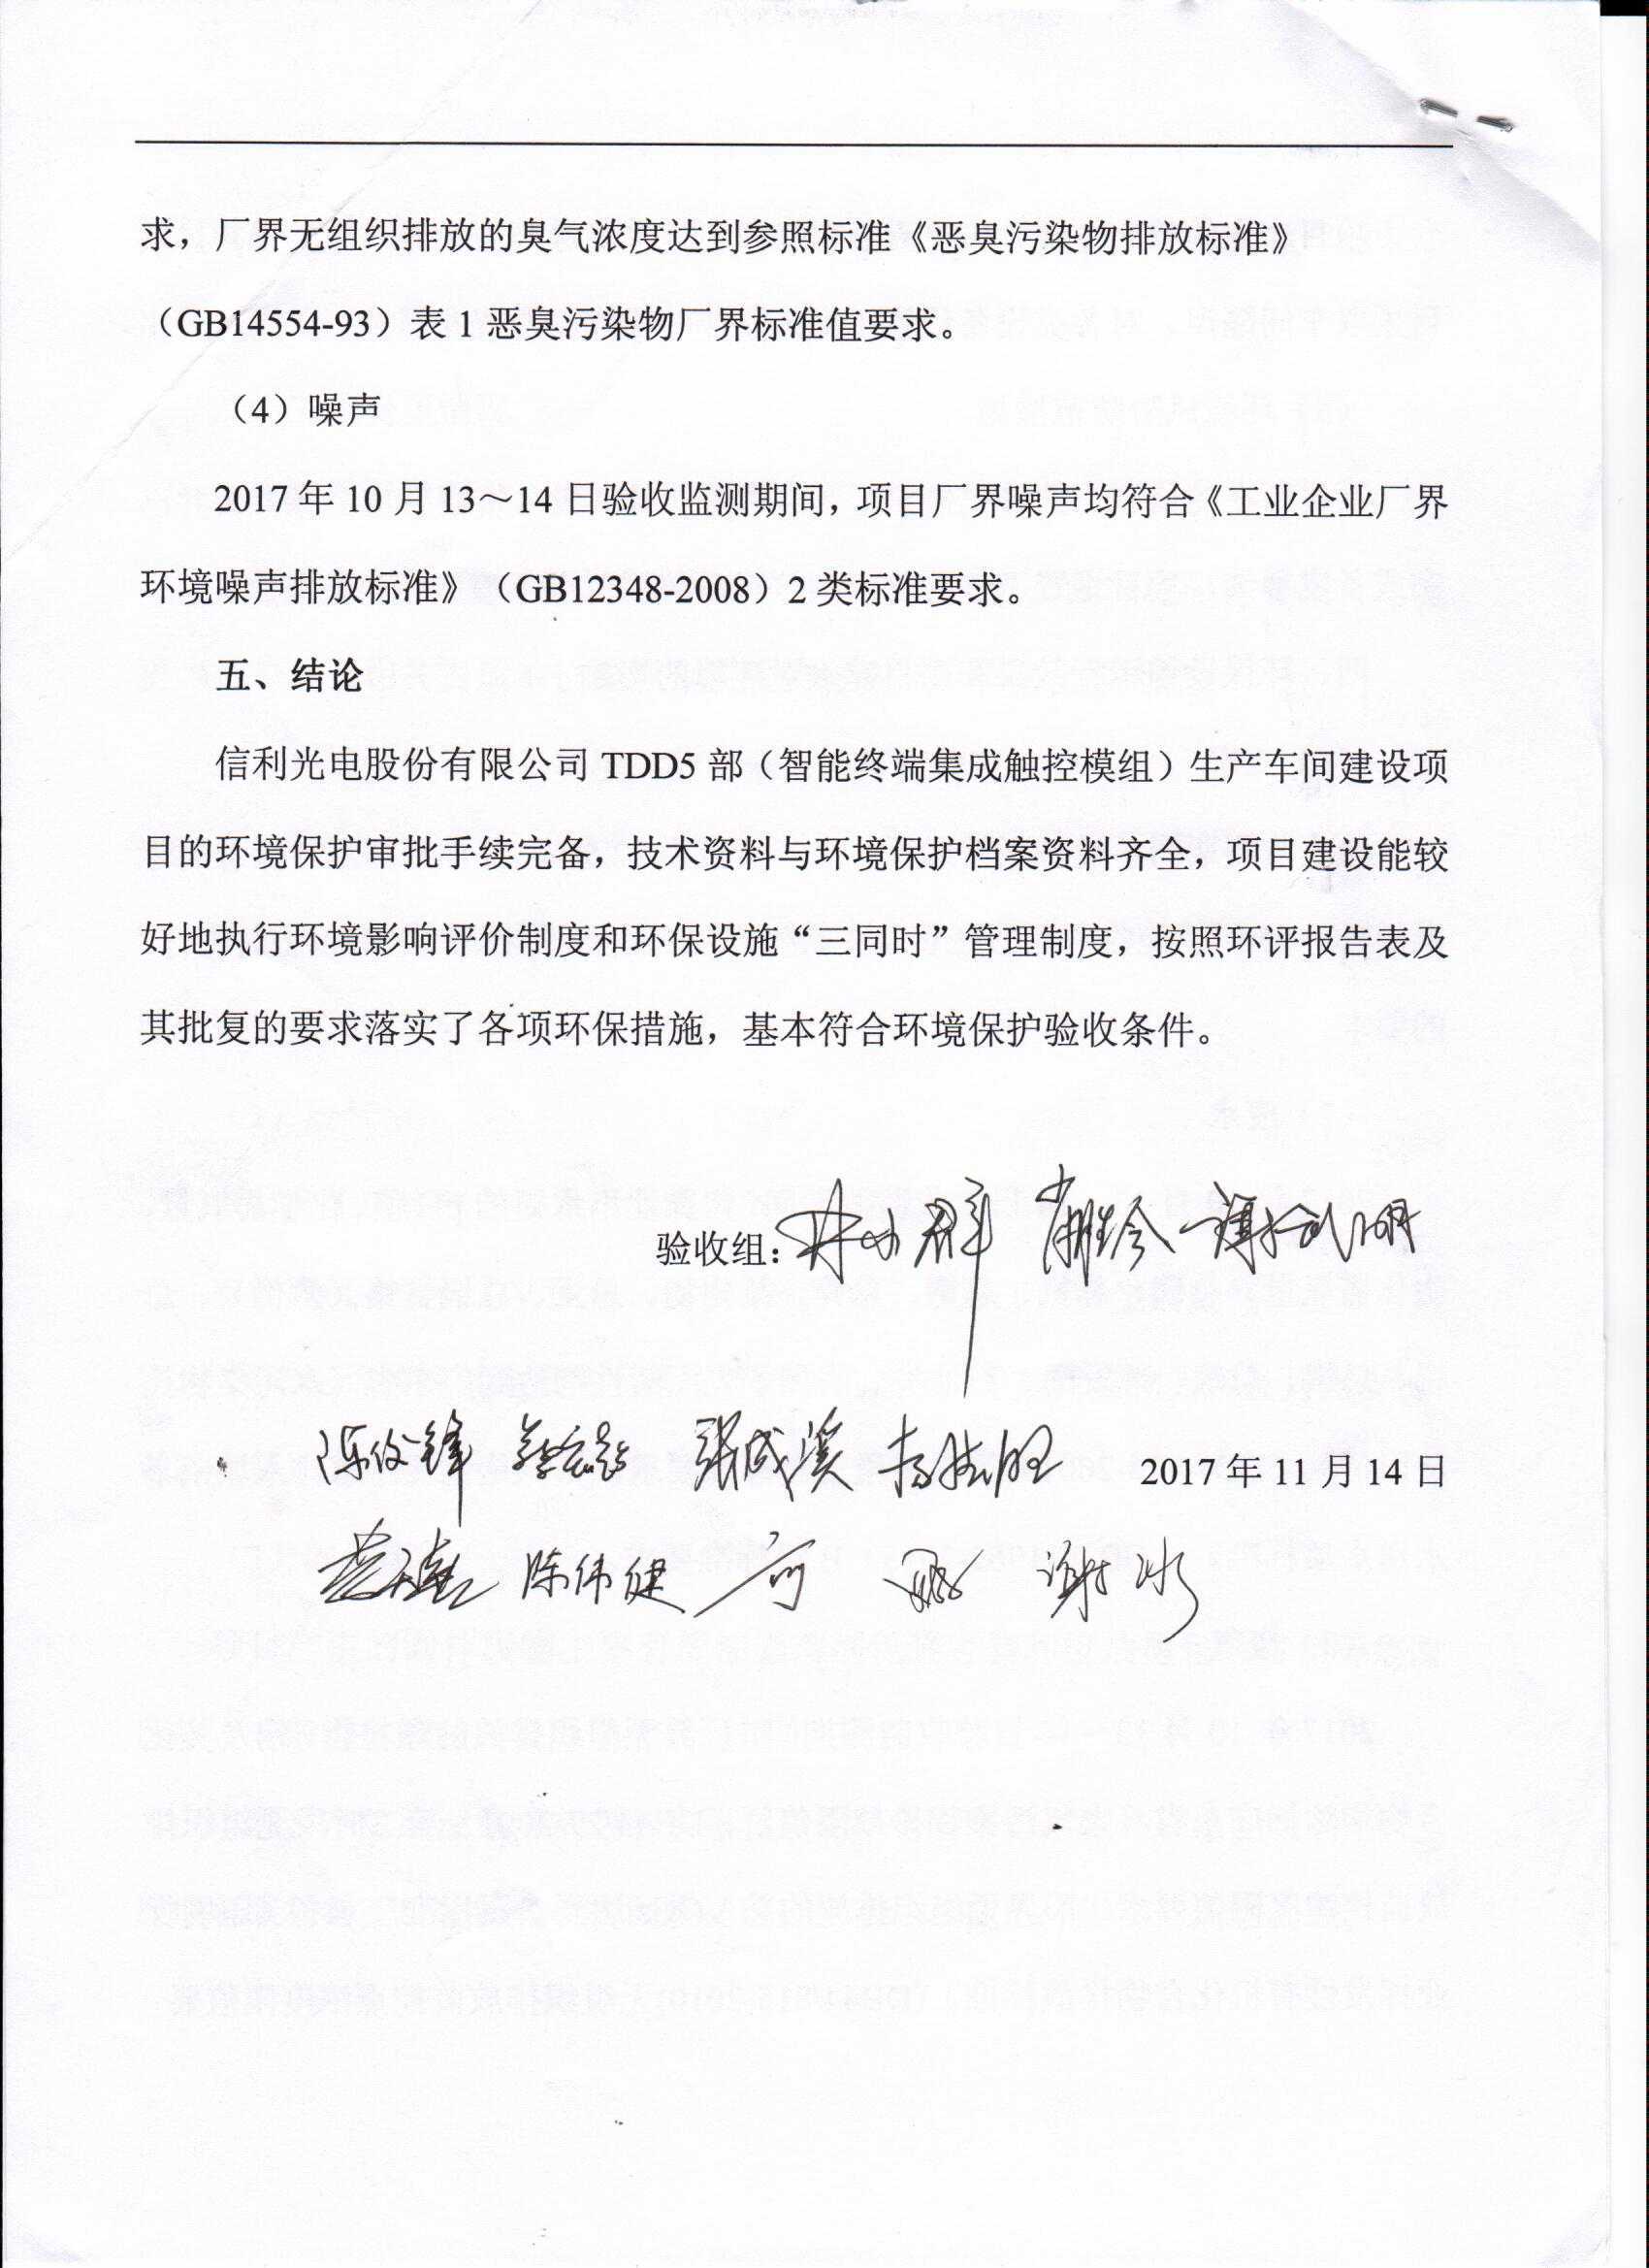 求，厂界无组织排放的臭气浓度达到参照标准《恶臭污染物排放标准》
（GB14554-93）表 1 恶臭污染物厂界标准值要求。
（4）噪声
2017 年 10 月 13～14 日验收监测期间，项目厂界噪声均符合《工业企业厂界
环境噪声排放标准》（GB12348-2008）2 类标准要求。
五、结论
信利光电股份有限公司 TDD5 部（智能终端集成触控模组）生产车间建设项
目的环境保护审批手续完备，技术资料与环境保护档案资料齐全，项目建设能较
好地执行环境影响评价制度和环保设施“三同时”管理制度，按照环评报告表及
其批复的要求落实了各项环保措施，基本符合环境保护验收条件。
验收组：林小群
陈俊锋 张成溪 2017 年 11 月 14 日
陈伟健 何 谢冰